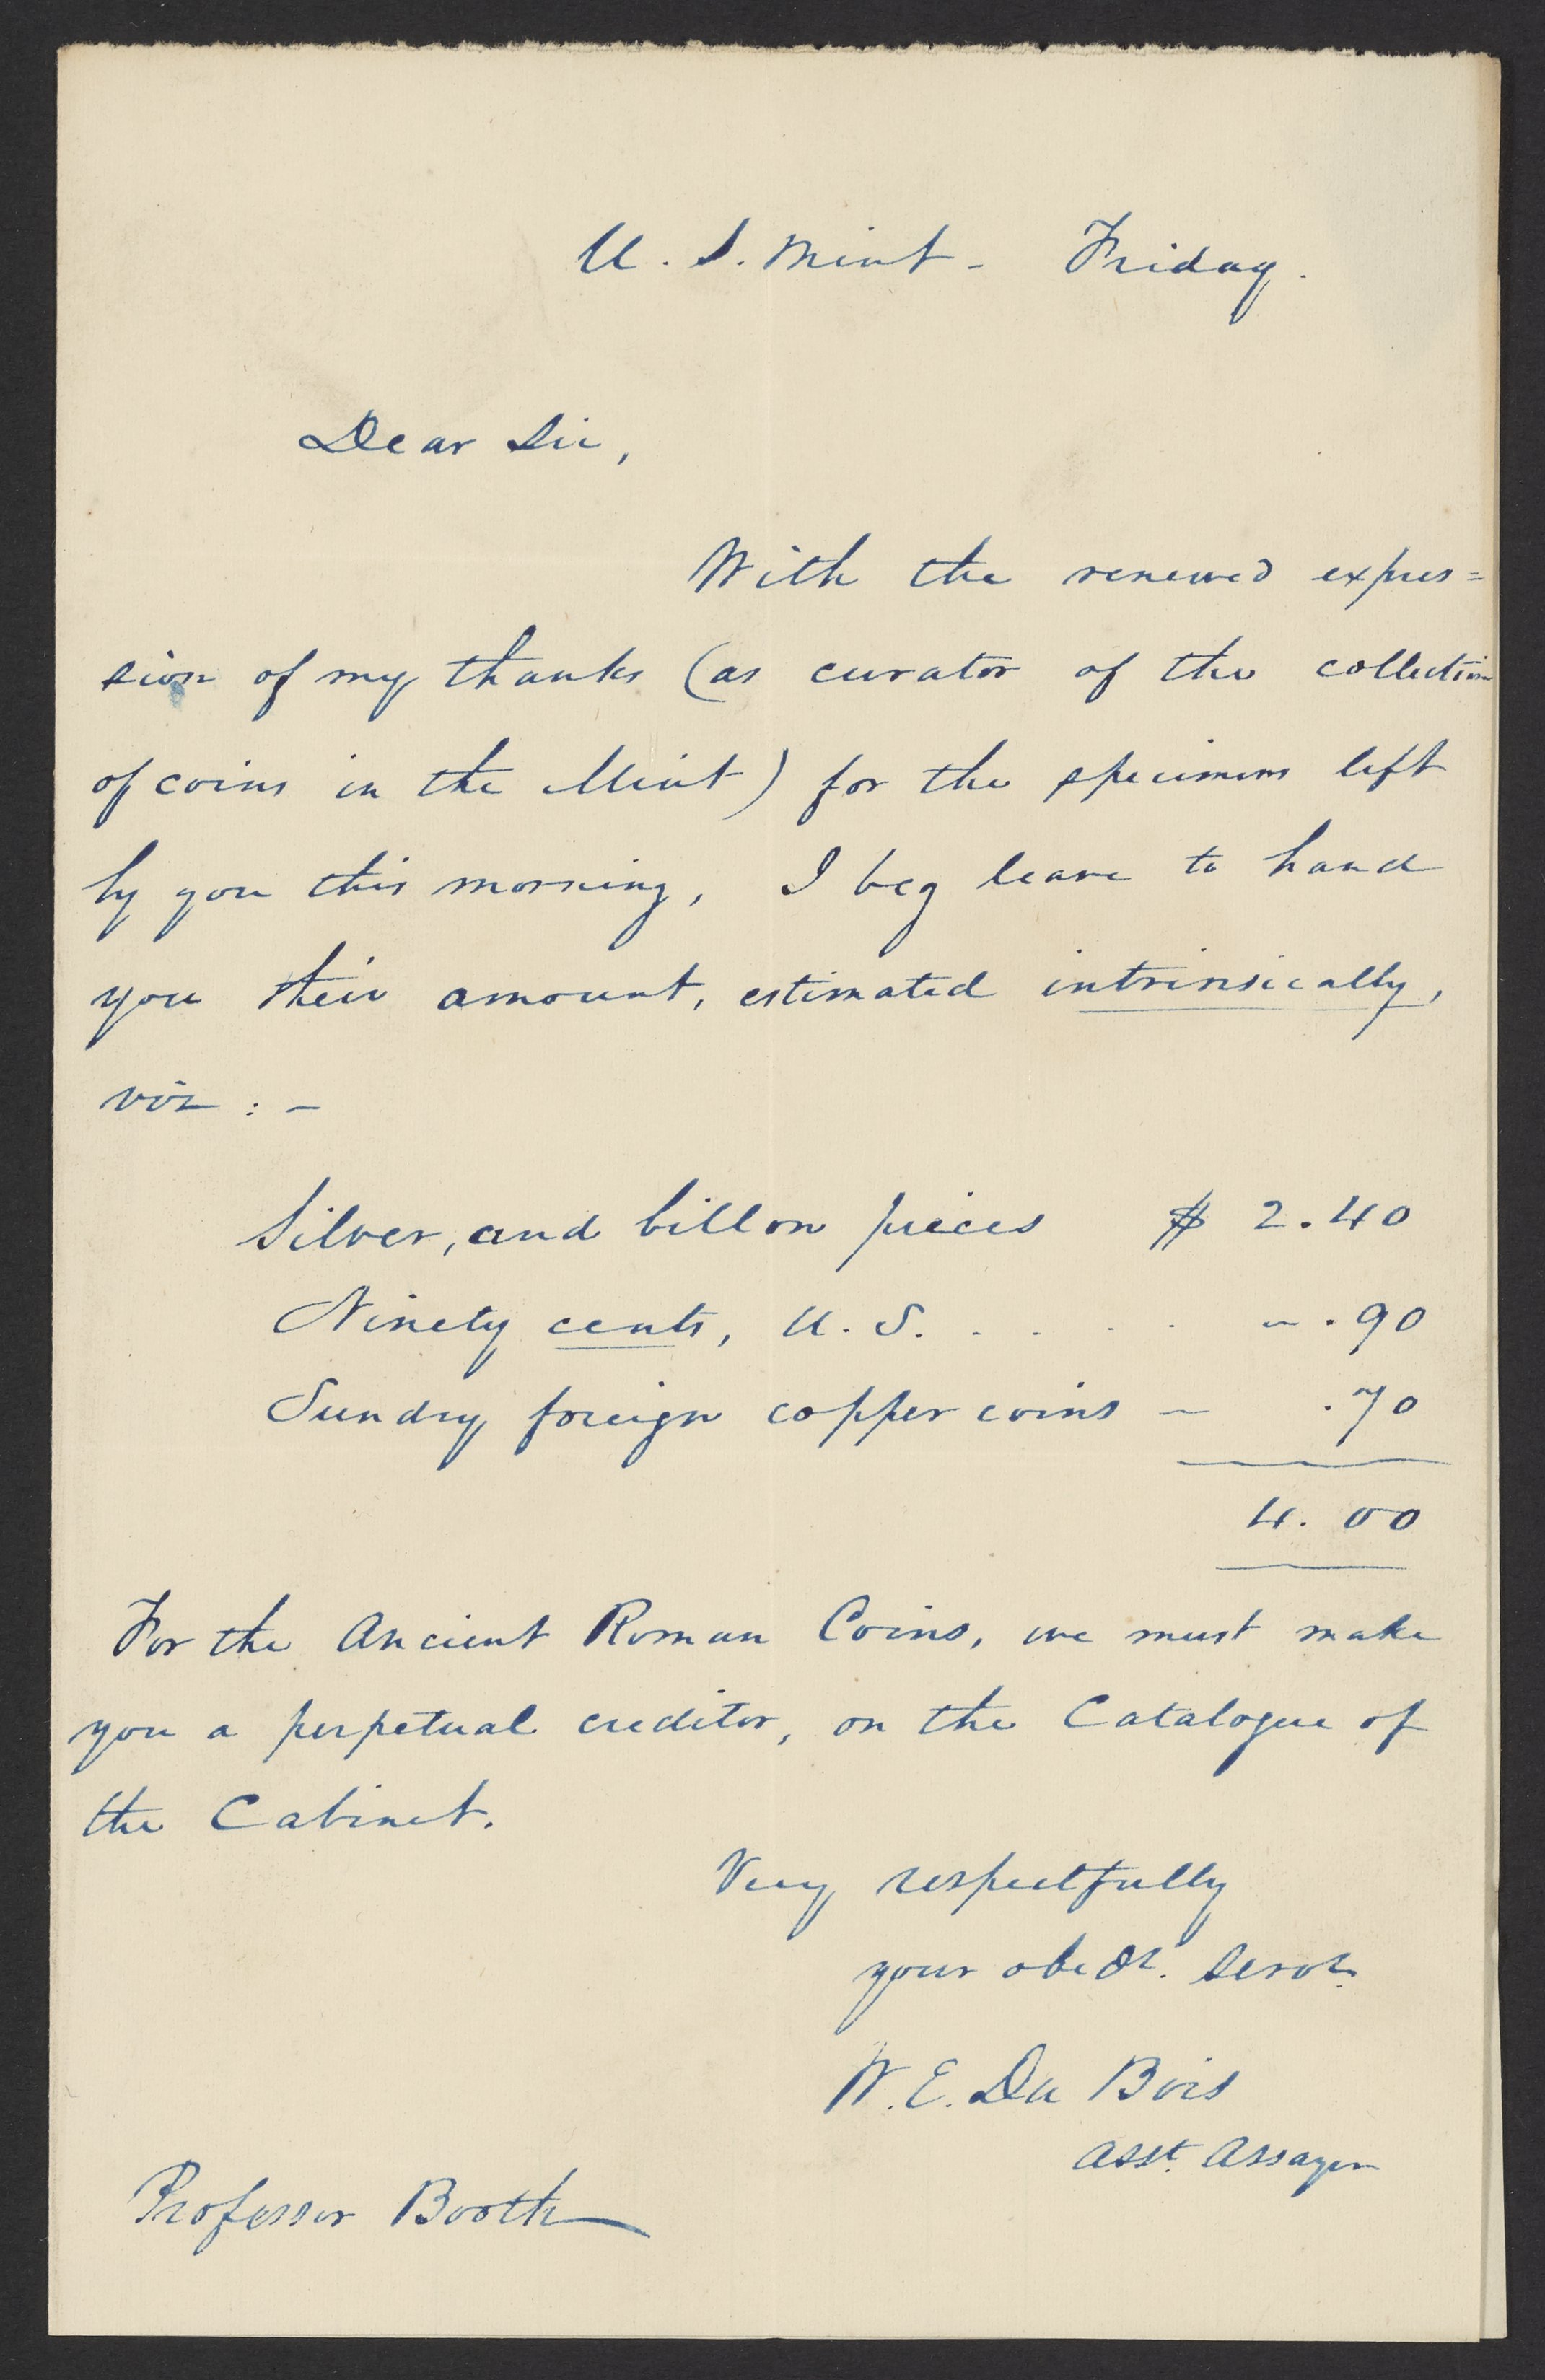 U. S. Mint - Friday.
Dear Sir,
With the renewed expres=
sion of my thanks (as curator of the collection
of coins in the Mint) for the specimens left
by you this morning, I beg leave to hand
you their amount, estimated intrinsically,
viz : -
Silver, and billon pieces $ 2.40
Ninety cents, U. S. . . . . . - .90
Sundry foreign copper coins - .70
4. 00
For the Ancient Roman Coins, we must make
you a perpetual creditor, on the Catalogue of
the Cabinet.
Very respectfully
your obedt. servt.
W. E. Du Bois
Asst. Assayer
Professor Booth